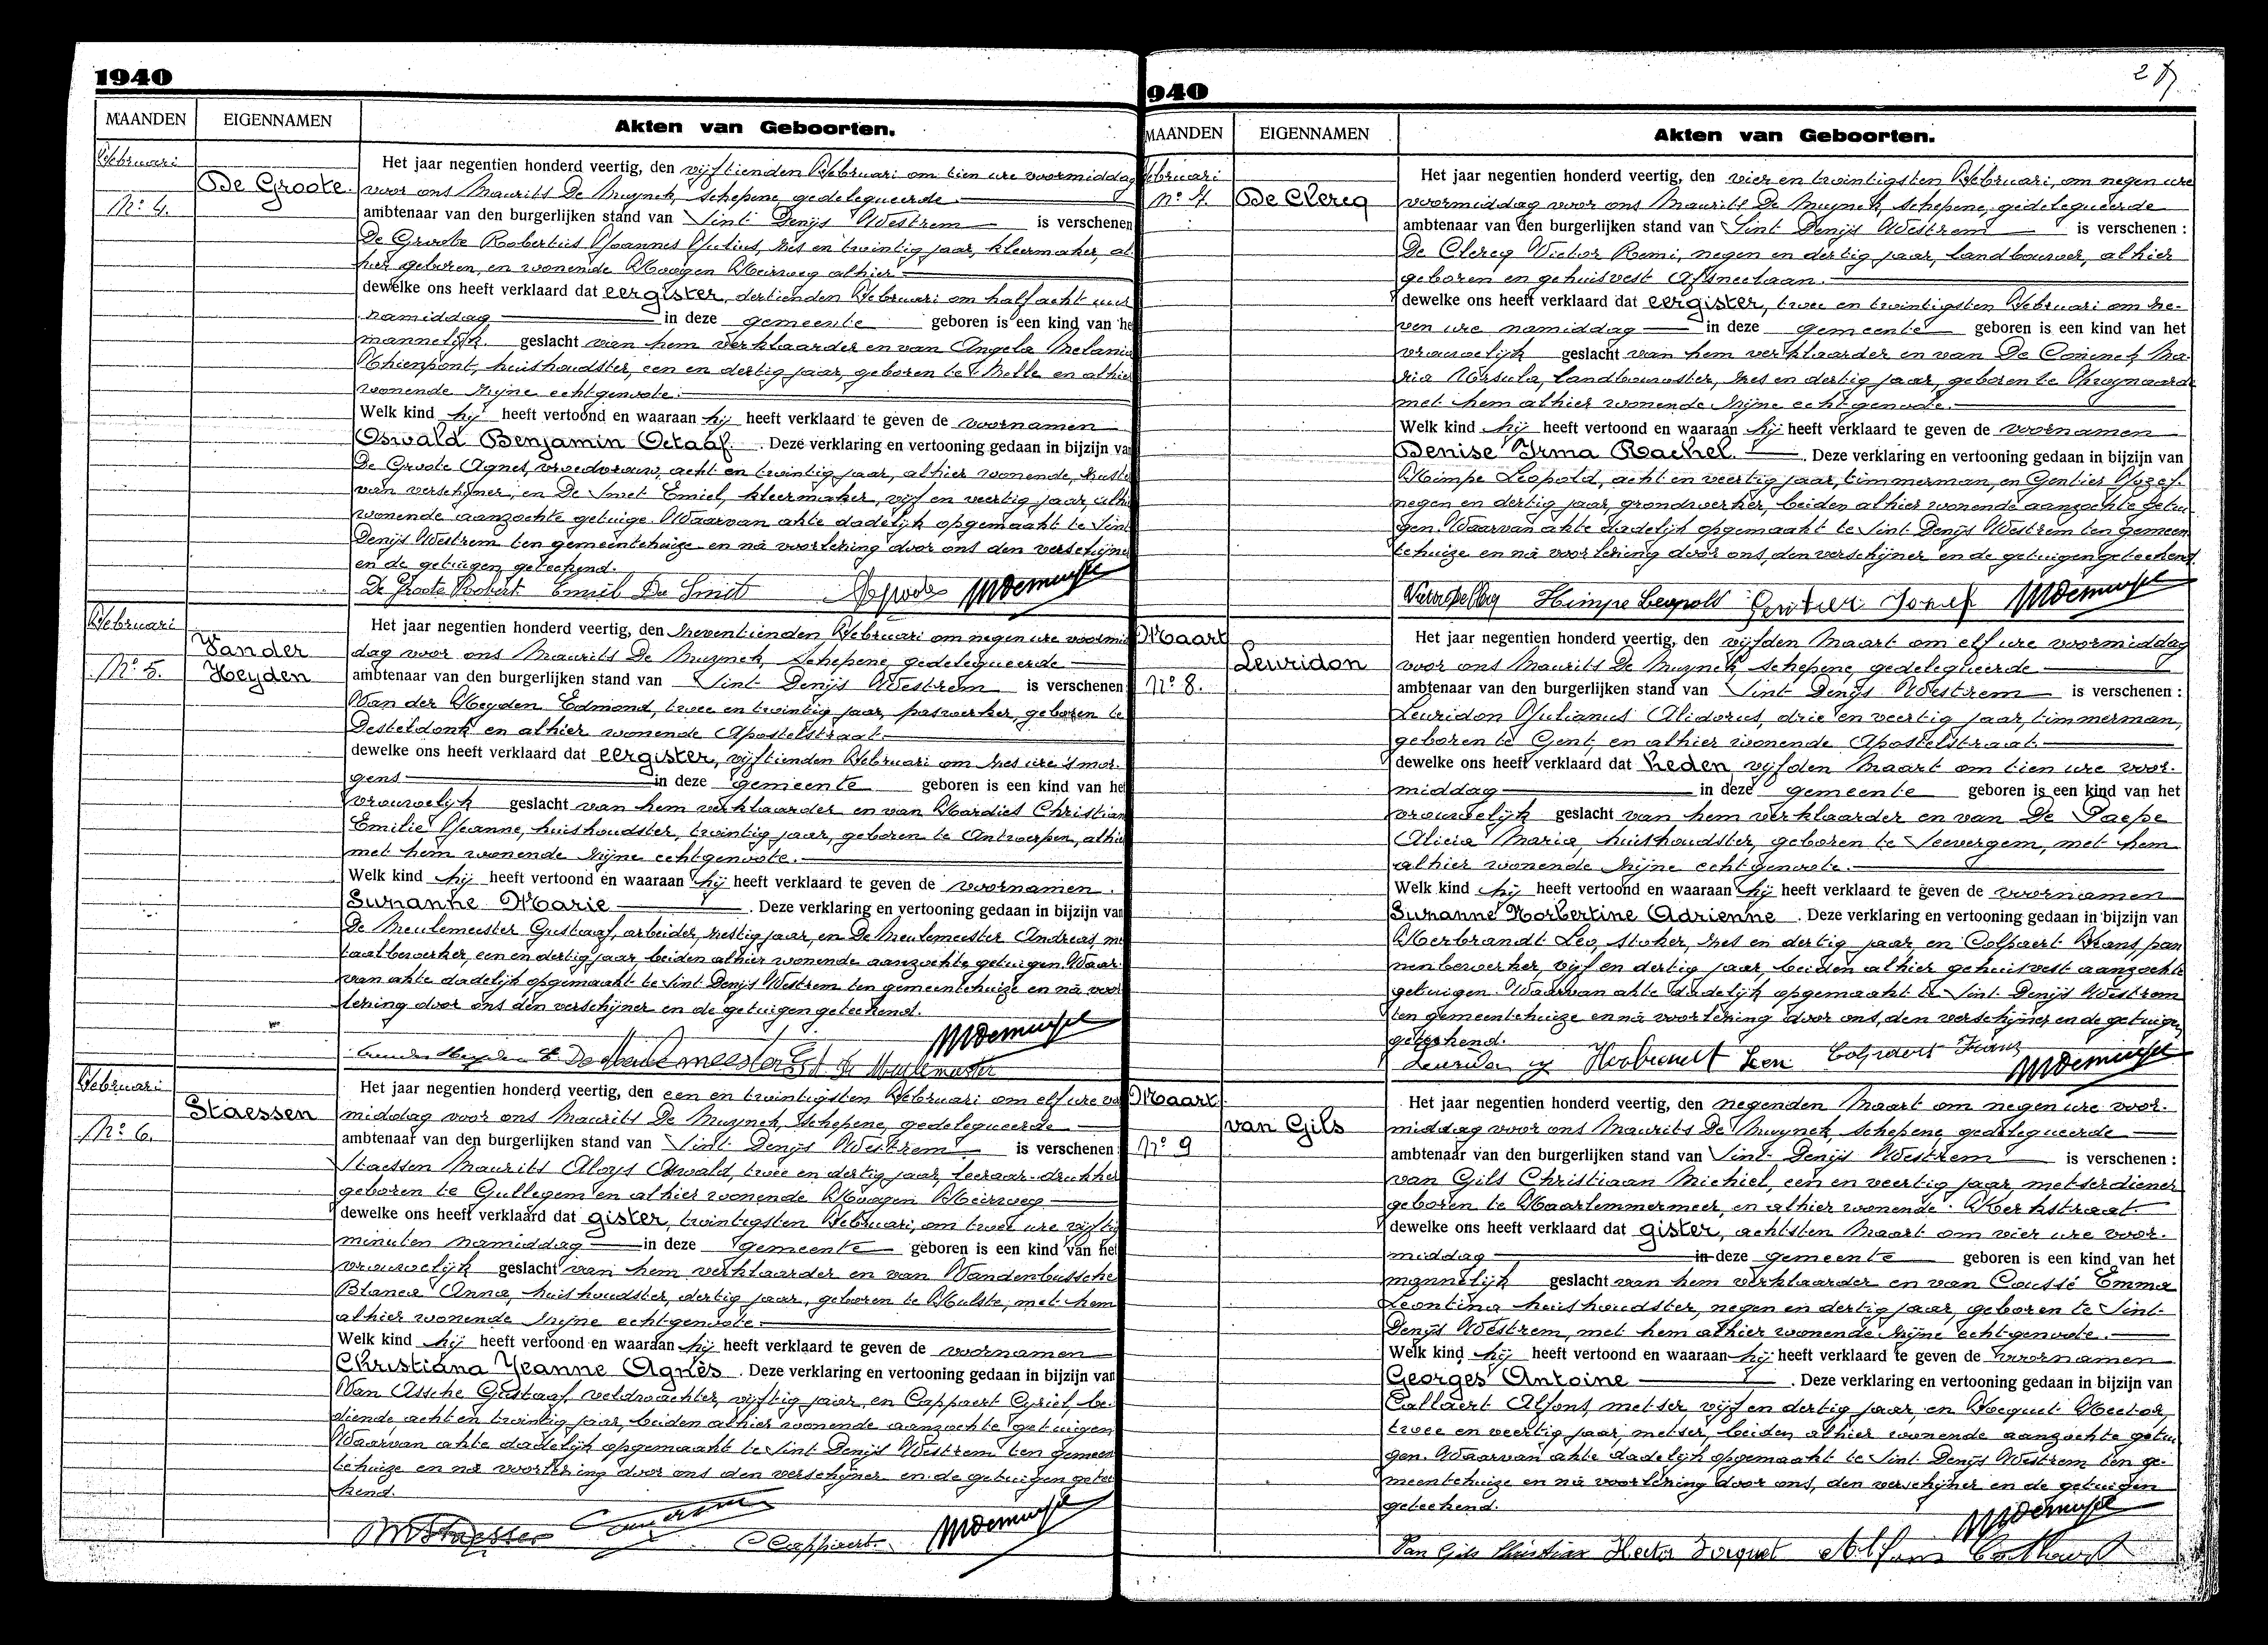 1940
MAANDEN EIGENNAMEN Akten van Geboorten.
Februari
De Groote
Nº 4.
Het jaar negentien honderd veertig, den vijftienden Februari om tien ure voormiddag
voor ons Maurits De Muynck, schepene, gedelegueerde
ambtenaar van den burgerlijken stand van Sint Denijs Westrem is verschenen
De Groote Robertus Joannes Julius, zes en twintig jaar, kleermaker, al
hier geboren, en wonende Hoogen Heirweg alhier
dewelke ons heeft verklaard dat eergister, dertienden Februari om half acht uur
namiddag in deze gemeente geboren is een kind van he
mannelijk geslacht van hem verklaarder en van Angela Melania
huishoudster, een en dertig jaar, geboren te Melle en alhier
wonende zijne echtgenote.
Welk kind hij heeft vertoond en waaraan hij heeft verklaard te geven de voornamen
Oswald Benjamin Octaaf. Deze verklaring en vertooning gedaan in bijzijn van
De Groote Agnes, vroedvrouw, acht en twintig jaar, alhier wonende, zuster
van verschijner, en De Smet Emiel, kleermaker, vijf en veertig jaar, alhi
wonende aanzochte getuige. Waarvan akte dadelijk opgemaakt te Sint
Denijs Westrem ten gemeentehuize en na voorlezing door ons den verschijne
en de getuigen geteekend.
De Groote Robert Emiel De Smet
Februari
Vander
Heyden
Nº 5.
Het jaar negentien honderd veertig, den zeventienden Februari om negen ure voormid
dag voor ons Maurits De Muynck, Schepene, gedelegueerde
ambtenaar van den burgerlijken stand van Sint Denijs Westrem is verschenen
Van der Heyden Edmond, twee en twintig jaar, paswerker, geboren te
Desteldonk en alhier wonende Apostelstraat
dewelke ons heeft verklaard dat eergister, vijftienden Februari om zes ure 's mor-
gens in deze gemeente geboren is een kind van het
vrouwelijk geslacht van hem verklaarder en van Hardies Christian
Emilie Jeanne, huishoudster, twintig jaar, geboren te Antwerpen, alhier
met hem wonende zijne echtgenote.
Welk kind hij heeft vertoond en waaraan hij heeft verklaard te geven de voornamen.
Suzanne Marie. Deze verklaring en vertooning gedaan in bijzijn van
De Meulemeester Gustaaf, arbeider, zestig jaar, en De Meulemeester Andreas, me
taalbewerker, een en dertig jaar, beiden alhier wonende aanzochte getuigen. Waar
van akte dadelijk opgemaakt te Sint Denijs Westrem ten gemeentehuize en na voor
lezing door ons den verschijner en de getuigen geteekend.
Februari
Staessen
Nº 6.
Het jaar negentien honderd veertig, den een en twintigsten Februari om elf ure vo
middag voor ons Maurits De Muynck, Schepene, gedelegueerde
ambtenaar van den burgerlijken stand van Sint Denijs Westrem is verschenen:
Staessen Maurits Aloys Oswald, twee en dertig jaar, leeraar-drukker
geboren te Gullegem en alhier wonende Hoogen Heirweg
dewelke ons heeft verklaard dat gister, twintigsten Februari, om twee ure vijftig
minuten namiddag in deze gemeente geboren is een kind van het
vrouwelijk geslacht van hem verklaarder en van Vandenbussche
Blanca Anna, huishoudster, dertig jaar, geboren te Hulste, met hem
alhier wonende zijne echtgenote.
Welk kind hij heeft vertoond en waaraan hij heeft verklaard te geven de voornamen
Christiana Jeanne Agnès. Deze verklaring en vertooning gedaan in bijzijn van
Van Assche Gustaaf, veldwachter, vijftig jaar, en Cappaert Cyriel, be-
diende acht en twintig jaar, beiden alhier wonende aanzochte getuigen
Waarvan akte dadelijk opgemaakt te Sint Denijs Westrem ten gemeen
tehuize en na voorlezing door ons den verschijner en de getuigen getee
kend.
C Cappaert.
940
27
MAANDEN EIGENNAMEN Akten van Geboorten.
ebruari
nº 7. De Clercq
Het jaar negentien honderd veertig, den vier en twintigsten Februari, om negen ure
voormiddag voor ons Maurits De Muynck, schepene, gedelegueerde
ambtenaar van den burgerlijken stand van Sint Denijs Westrem is verschenen :
De Clercq Victor Remi, negen en dertig jaar, landbouwer, alhier
geboren en gehuisvest Afsneelaan.
dewelke ons heeft verklaard dat eergister, twee en twintigsten Februari om ze-
ven ure namiddag in deze gemeente geboren is een kind van het
vrouwelijk geslacht van hem verklaarder en van De Coninck Ma-
ria Ursula, landbouwster, zes en dertig jaar, geboren te Zwijnaarde
met hem alhier wonende zijne echtgenote.
Welk kind hij heeft vertoond en waaraan hij heeft verklaard te geven de voornamen
Denise Irma Rachel. Deze verklaring en vertooning gedaan in bijzijn van
Himpe Leopold, acht en veertig jaar, timmerman, en Gentier Jozef.
negen en dertig jaar, grondwerker, beiden alhier wonende aanzochte getui
gen. Waarvan akte dadelijk opgemaakt te Sint Denijs Westrem ten gemeen
tehuize en na voorlezing door ons, den verschijner en de getuigen geteekend.
Himpe Leopold Gentier Jozef
Maart
Leuridon
Nº 8.
Het jaar negentien honderd veertig, den vijfden Maart om elf ure voormiddag
voor ons Maurits De Muynck, schepene, gedelegueerde
ambtenaar van den burgerlijken stand van Sint Denijs Westrem is verschenen :
Leuridon Julianus Alidorus, drie en veertig jaar, timmerman,
geboren te Gent, en alhier wonende Apostelstraat.
dewelke ons heeft verklaard dat heden vijfden Maart om tien ure voor-
middag in deze gemeente geboren is een kind van het
vrouwelijk geslacht van hem verklaarder en van De Paepe
Alicia Maria, huishoudster, geboren te Seevergem, met hem
alhier wonende zijne echtgenote.
Welk kind hij heeft vertoond en waaraan hij heeft verklaard te geven de voornamen
Suzanne Norbertine Adrienne. Deze verklaring en vertooning gedaan in bijzijn van
Herbrandt Leo, stoker, zes en dertig jaar, en Colpaert Frans, pan
nenbewerker, vijf en dertig jaar, beiden alhier gehuisvest aanzochte
getuigen. Waarvan akte dadelijk opgemaakt te Sint Denijs Westrem
ten gemeentehuize en na voorlezing door ons, den verschijner en de getuigen
geteekend.
Colpaert Frans
Maart
van Gils
Nº 9
Het jaar negentien honderd veertig, den negenden Maart om negen ure voor-
middag voor ons Maurits De Muynck, schepene, gedelegueerde
ambtenaar van den burgerlijken stand van Sint Denijs Westrem is verschenen :
van Gils Christiaan Michiel, een en veertig jaar, metserdiener
geboren te Haarlemmermeer, en alhier wonende Kerkstraat.
dewelke ons heeft verklaard dat gister, achtsten Maart om vier ure voor-
middag in deze gemeente geboren is een kind van het
mannelijk geslacht van hem verklaarder en van Coussé Emma
Leontina huishoudster, negen en dertig jaar, geboren te Sint-
Denijs Westrem, met hem alhier wonende zijne echtgenote.
Welk kind hij heeft vertoond en waaraan hij heeft verklaard te geven de voornamen
Georges Antoine. Deze verklaring en vertooning gedaan in bijzijn van
Callaert Alfons, metser vijf en dertig jaar, en Hector,
twee en veertig jaar, metser, beiden alhier wonende aanzochte getui
gen. Waarvan akte dadelijk opgemaakt te Sint Denijs Westrem ten ge-
meentehuize en na voorlezing door ons, den verschijner en de getuigen
geteekend.
Van Gils Christian Hector Alfons